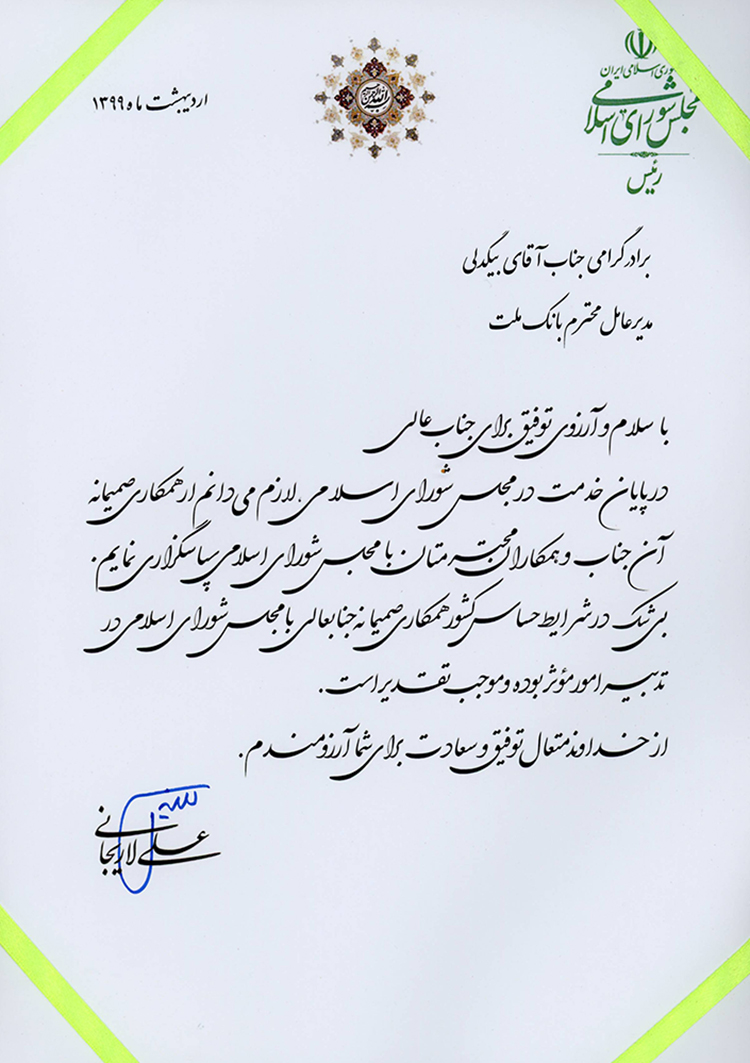 جمهوری اسلامی ایران
مجلس شورای اسلامی
رئیس
اردیبهشت ماه ۱۳۹۹
بسم الله الرحمن الرحیم
برادر گرامی جناب آقای بیگدلی
مدیرعامل محترم بانک ملت
با سلام و آرزوی توفیق برای جناب عالی
در پایان خدمت در مجلس شورای اسلامی لازم می دانم از همکاری صمیمانه
آن جناب و همکاران محترمتان با مجلس شورای اسلامی سپاسگزاری نمایم.
بی شک در شرایط حساس کشور همکاری صمیمانه جنابعالی با مجلس شورای اسلامی در
تدبیر امور مؤثر بوده و موجب تقدیر است.
از خداوند متعال توفیق و سعادت برای شما آرزومندم.
علی لاریجانی